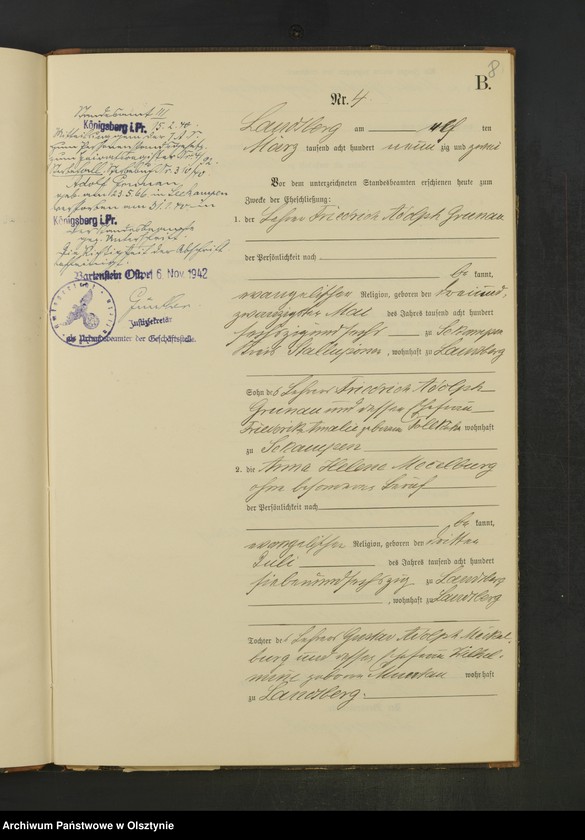 8
B.
Nr. 4
Landsberg am elf ten
März tausend acht hundert neun zig und zwei
Vor dem unterzeichneten Standesbeamten erschienen heute zum
Zwecke der Eheschließung:
1. der Lehrer Friedrich Adolph Grunau
der Persönlichkeit nach
be kannt,
evangelischer Religion, geboren den drei und
zwanzigsten Mai des Jahres tausend acht hundert
sechszig und sechs zu Sekampen
Kreis Stallupönen, wohnhaft zu Landsberg
Sohn des Lehrers Friedrich Adolph
Grunau und dessen Ehefrau
Friederike Amalie geborene wohnhaft
zu Sekampen
2. die Anna Helene Meckelburg
ohne besonderen Beruf
der Persönlichkeit nach
be kannt,
evangelischer Religion, geboren den dritten
Juli des Jahres tausend acht hundert
sieben und sechszig zu Landsberg
, wohnhaft zu Landsberg
Tochter des Lehrers Gustav Adolph Meckel-
burg und dessen Ehefrau Wilhel-
mine geborene wohnhaft
zu Landsberg.
Standesamt III
Königsberg i. Pr. 15. 2. 44.
Adolf
geb. am 23.5.66 in Sekampen
verstorben am in
Königsberg i. Pr.
Der Standesbeamte
gez. Unterschrift
Die Richtigkeit der Abschrift
Bartenstein Ostpr. 6. Nov. 1942
Justizsekretär
als Urkundsbeamter der Geschäftsstelle.
Archiwum Państwowe w Olsztynie